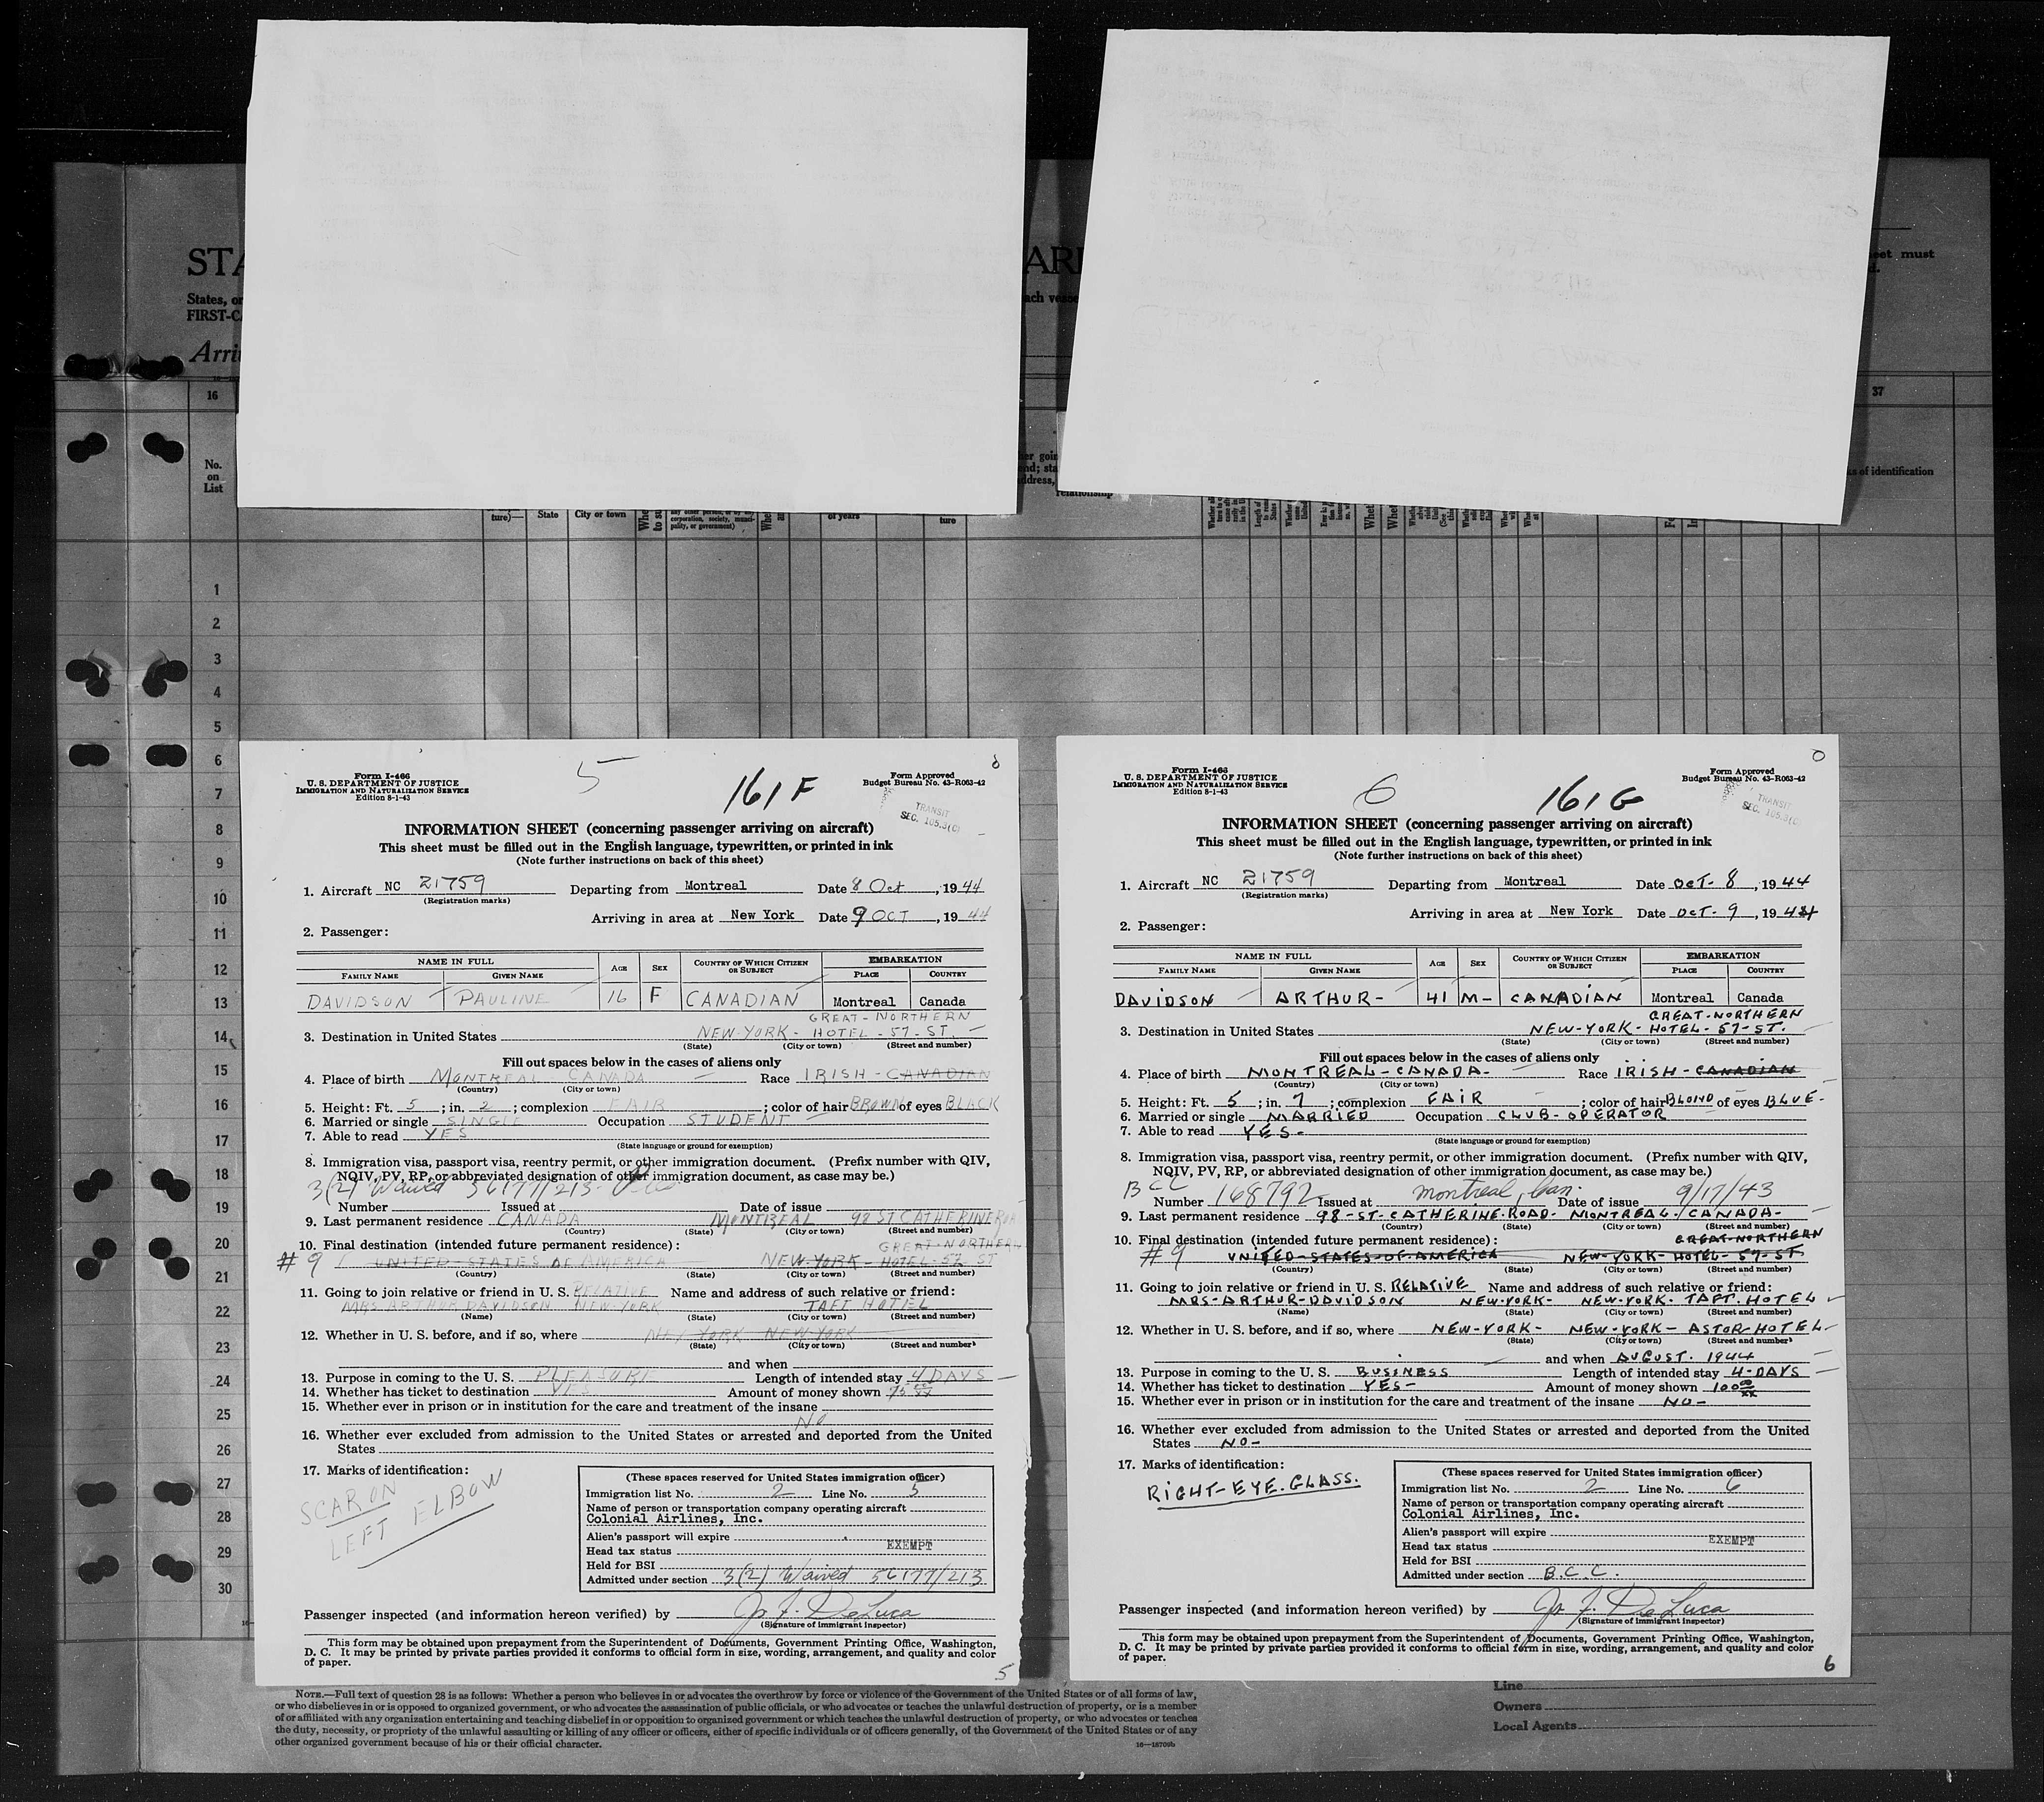 STA
ARI
eet must
States, or
ach vesse
d.
FIRST-C
Arri
16
37
No.
on
List
er goin
nd; sta
ddress,
relationship
s of identification
ture)—
State
City or town
of years
ture
1
2
3
4
5
6
7
8
9
10
11
12
13
14
15
16
17
18
19
20
21
22
23
24
25
26
27
28
29
30
Form I-466
U. S. DEPARTMENT OF JUSTICE
IMMIGRATION AND NATURALIZATION SERVICE
Edition 8-1-43
5
161 F
Form Approved
Budget Bureau No. 43-R063-42
TRANSIT
SEC. 105.3(C)
INFORMATION SHEET (concerning passenger arriving on aircraft)
This sheet must be filled out in the English language, typewritten, or printed in ink
(Note further instructions on back of this sheet)
1. Aircraft NC 21759 Departing from Montreal Date 8 Oct, 1944
(Registration marks)
Arriving in area at New York Date 9 OCT, 1944
2. Passenger:
NAME IN FULL AGE SEX COUNTRY OF WHICH CITIZEN OR SUBJECT EMBARKATION
FAMILY NAME GIVEN NAME PLACE COUNTRY
DAVIDSON PAULINE 16 F CANADIAN Montreal Canada
GREAT-NORTHERN
3. Destination in United States NEW-YORK- HOTEL-57-ST.
(State) (City or town) (Street and number)
Fill out spaces below in the cases of aliens only
4. Place of birth MONTREAL CANADA Race IRISH-CANADIAN
(Country) (City or town)
5. Height: Ft. 5; in. 2; complexion FAIR; color of hair BROWN of eyes BLACK
6. Married or single SINGLE Occupation STUDENT
7. Able to read YES
(State language or ground for exemption)
8. Immigration visa, passport visa, reentry permit, or other immigration document. (Prefix number with QIV,
NQIV, PV, RP, or abbreviated designation of other immigration document, as case may be.)
3(2) Waived 56177/213
Number Issued at Date of issue
9. Last permanent residence CANADA MONTREAL 98 ST CATHERINE ROA
(Country) (State) (City or town) (Street and number)
10. Final destination (intended future permanent residence): GREAT-NORTHERN
#9 UNITED-STATES OF AMERICA NEW-YORK- HOTEL-57 ST
(Country) (State) (City or town) (Street and number)
11. Going to join relative or friend in U. S. RELATIVE Name and address of such relative or friend:
MRS ARTHUR DAVIDSON NEW-YORK TAFT HOTEL
(Name) (State) (City or town) (Street and number)
12. Whether in U. S. before, and if so, where NEW YORK NEW YORK
(State) (City or town) (Street and number)
and when
13. Purpose in coming to the U. S. PLEASURE Length of intended stay 4 DAYS
14. Whether has ticket to destination YES Amount of money shown 75 xx
15. Whether ever in prison or in institution for the care and treatment of the insane
NO
16. Whether ever excluded from admission to the United States or arrested and deported from the United
States
17. Marks of identification:
SCAR ON
LEFT ELBOW
(These spaces reserved for United States immigration officer)
Immigration list No. 2 Line No. 5
Name of person or transportation company operating aircraft
Colonial Airlines, Inc.
Alien's passport will expire
Head tax status EXEMPT
Held for BSI
Admitted under section 3(2) Waived 56177/213
Passenger inspected (and information hereon verified) by Jo. J. DeLuca
(Signature of immigrant inspector)
This form may be obtained upon prepayment from the Superintendent of Documents, Government Printing Office, Washington,
D. C. It may be printed by private parties provided it conforms to official form in size, wording, arrangement, and quality and color
of paper.
5
Form I-466
U. S. DEPARTMENT OF JUSTICE
IMMIGRATION AND NATURALIZATION SERVICE
Edition 8-1-43
6
161 G
Form Approved
Budget Bureau No. 43-R063-42
TRANSIT
SEC. 105.3(C
INFORMATION SHEET (concerning passenger arriving on aircraft)
This sheet must be filled out in the English language, typewritten, or printed in ink
(Note further instructions on back of this sheet)
1. Aircraft NC 21759 Departing from Montreal Date OCT- 8, 1944
(Registration marks)
Arriving in area at New York Date OCT-9, 1944
2. Passenger:
NAME IN FULL AGE SEX COUNTRY OF WHICH CITIZEN OR SUBJECT EMBARKATION
FAMILY NAME GIVEN NAME PLACE COUNTRY
DAVIDSON ARTHUR- 41 M- CANADIAN Montreal Canada
GREAT-NORTHERN
3. Destination in United States NEW-YORK- HOTEL-57-ST.
(State) (City or town) (Street and number)
Fill out spaces below in the cases of aliens only
4. Place of birth MONTREAL-CANADA- Race IRISH-CANADIAN
(Country) (City or town)
5. Height: Ft. 5; in. 7; complexion FAIR; color of hair BLOND of eyes BLUE-
6. Married or single MARRIED Occupation CLUB-OPERATOR
7. Able to read YES-
(State language or ground for exemption)
8. Immigration visa, passport visa, reentry permit, or other immigration document. (Prefix number with QIV,
NQIV, PV, RP, or abbreviated designation of other immigration document, as case may be.)
BCC
Number 168792 Issued at Montreal, Can. Date of issue 9/17/43
9. Last permanent residence 98-ST-CATHERINE-ROAD- MONTREAL-CANADA-
(Country) (State) (City or town) (Street and number)
10. Final destination (intended future permanent residence): GREAT-NORTHERN
#9 UNITED-STATES-OF-AMERICA NEW-YORK- HOTEL-57-ST
(Country) (State) (City or town) (Street and number)
11. Going to join relative or friend in U. S. RELATIVE Name and address of such relative or friend:
MRS-ARTHUR-DAVIDSON NEW-YORK- NEW-YORK- TAFT-HOTEL
(Name) (State) (City or town) (Street and number)
12. Whether in U. S. before, and if so, where NEW-YORK- NEW-YORK- ASTOR-HOTEL-
(State) (City or town) (Street and number)
and when AUGUST. 1944
13. Purpose in coming to the U. S. BUSINESS Length of intended stay 4-DAYS
14. Whether has ticket to destination YES- Amount of money shown 100 00/xx
15. Whether ever in prison or in institution for the care and treatment of the insane NO-
16. Whether ever excluded from admission to the United States or arrested and deported from the United
States NO-
17. Marks of identification:
RIGHT-EYE.GLASS.
(These spaces reserved for United States immigration officer)
Immigration list No. 2 Line No. 6
Name of person or transportation company operating aircraft
Colonial Airlines, Inc.
Alien's passport will expire
Head tax status EXEMPT
Held for BSI
Admitted under section B.C.C.
Passenger inspected (and information hereon verified) by Jo. J. DeLuca
(Signature of immigrant inspector)
This form may be obtained upon prepayment from the Superintendent of Documents, Government Printing Office, Washington,
D. C. It may be printed by private parties provided it conforms to official form in size, wording, arrangement, and quality and color
of paper.
6
NOTE.—Full text of question 28 is as follows: Whether a person who believes in or advocates the overthrow by force or violence of the Government of the United States or of all forms of law,
or who disbelieves in or is opposed to organized government, or who advocates the assassination of public officials, or who advocates or teaches the unlawful destruction of property, or is a member
of or affiliated with any organization entertaining and teaching disbelief in or opposition to organized government or which teaches the unlawful destruction of property, or who advocates or teaches
the duty, necessity, or propriety of the unlawful assaulting or killing of any officer or officers, either of specific individuals or of officers generally, of the Government of the United States or of any
other organized government because of his or their official character.
16—18709b
Line
Owners
Local Agents